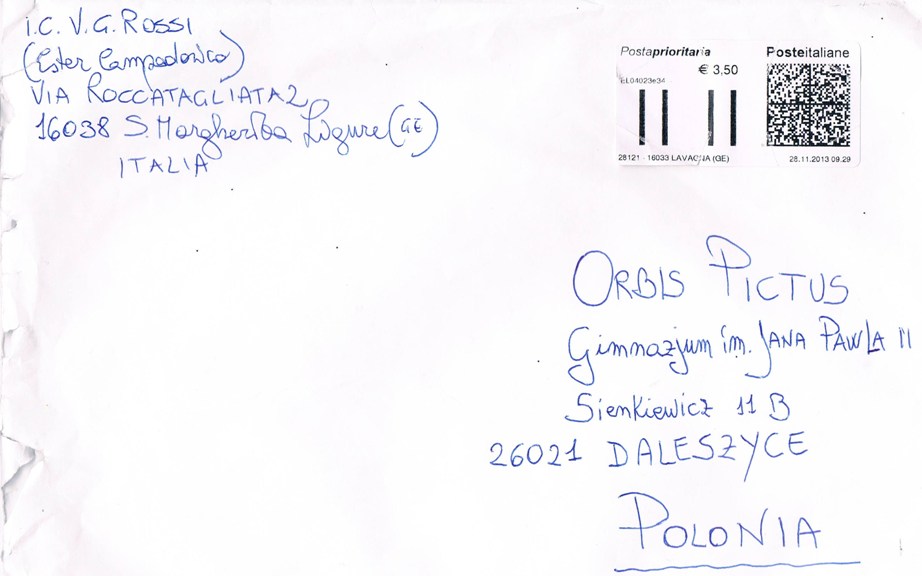 I.C. V.G. ROSSI
(Ester Campodonico)
VIA ROCCATAGLIATA 2
16038 S. Margherita Ligure (GE)
ITALIA
Postaprioritaria
Posteitaliane
€ 3,50
EL04023e34
28121 - 16033 LAVAGNA (GE)
28.11.2013 09.29
ORBIS PICTUS
Gimnazjum im. JANA PAWLA II
Sienkiewicz 11 B
26021 DALESZYCE
POLONIA